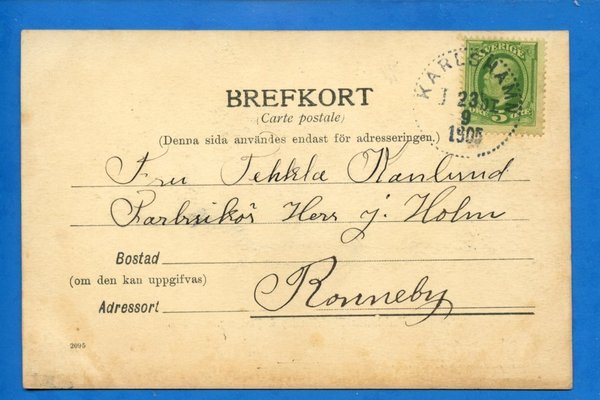 SVERIGE
KARLSHAMN
23
9
1905
5
BREFKORT
(Carte postale)
(Denna sida användes endast för adresseringen.)
Fru Tekkla Kanlund
Farbrikös Herr J. Holm
Bostad
(om den kan uppgifvas)
Ronneby
Adressort
2095